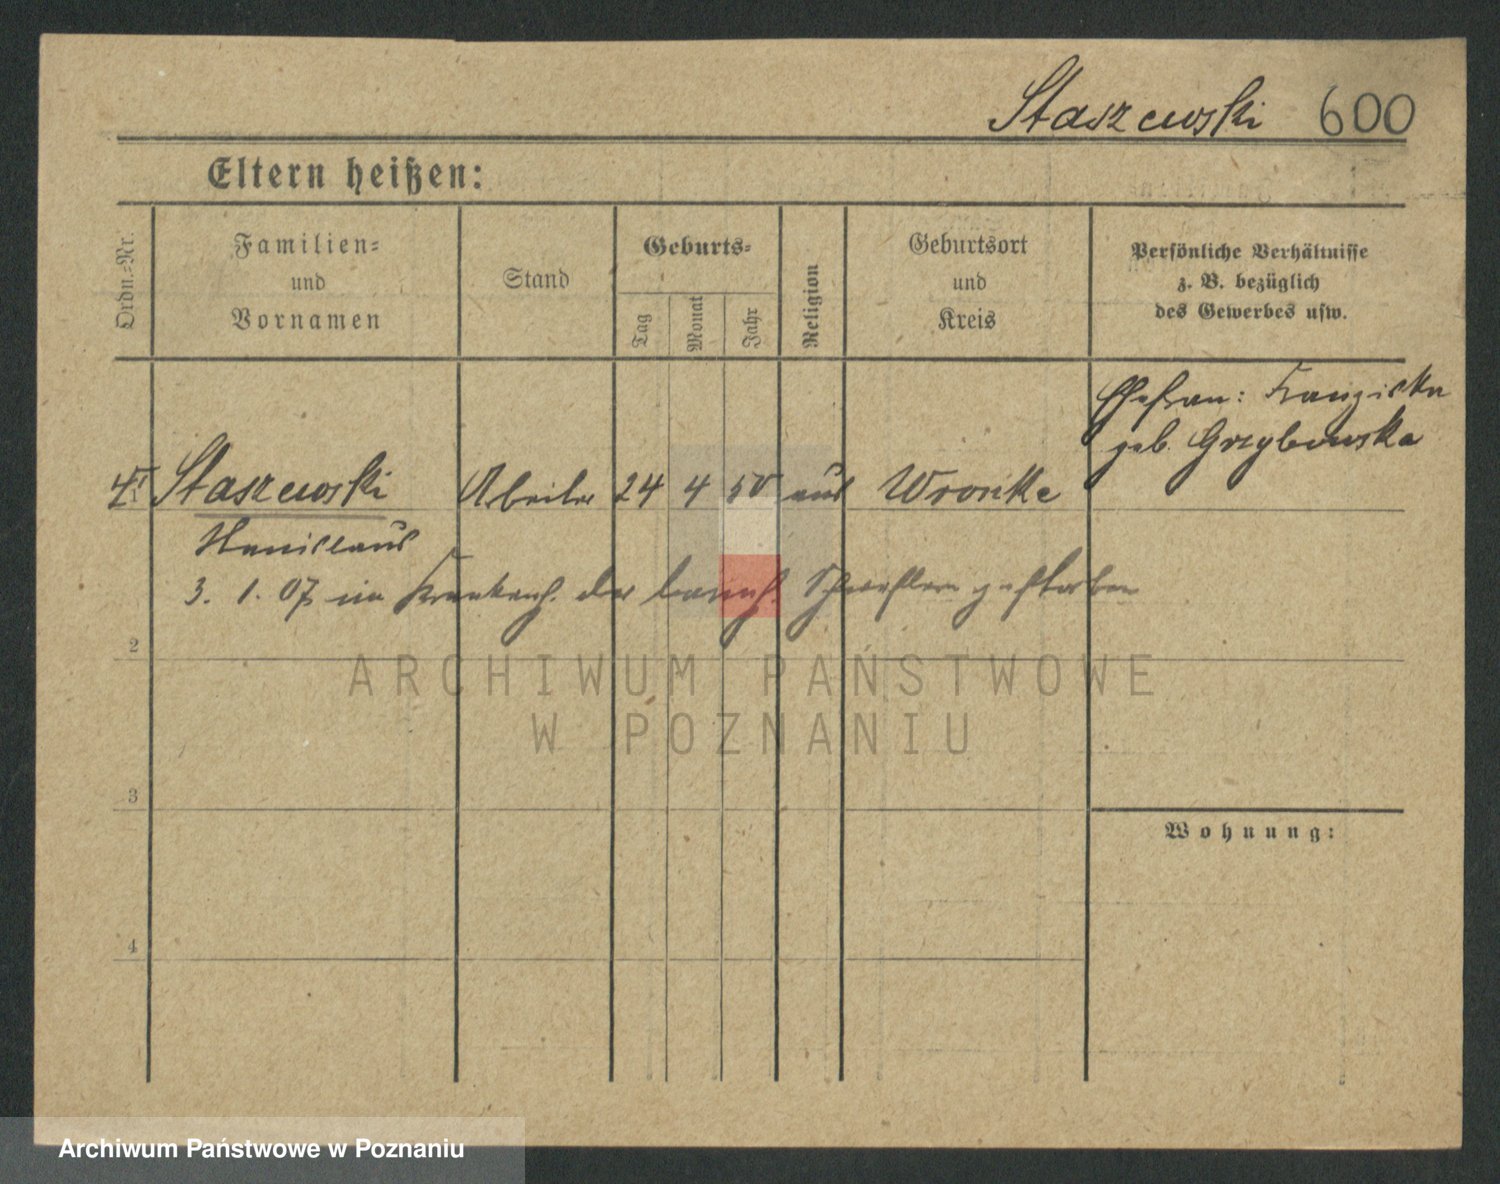 Staszewski 600
Eltern heißen:
Ordn.-Nr.
Familien-
und
Vornamen
Stand
Geburts-
Tag
Monat
Jahr
Religion
Geburtsort
und
Kreis
Persönliche Verhältnisse
z. B. bezüglich
des Gewerbes usw.
Ehefrau: Franziska
geb. Grzybowska
Staszewski Arbeiter 24 4 50 aus Wronke
Stanislaus
3. 1. 07 im Krankenh. der barmh. Schwestern gestorben
2
3
4
Wohnung:
ARCHIWUM PAŃSTWOWE
W POZNANIU
Archiwum Państwowe w Poznaniu